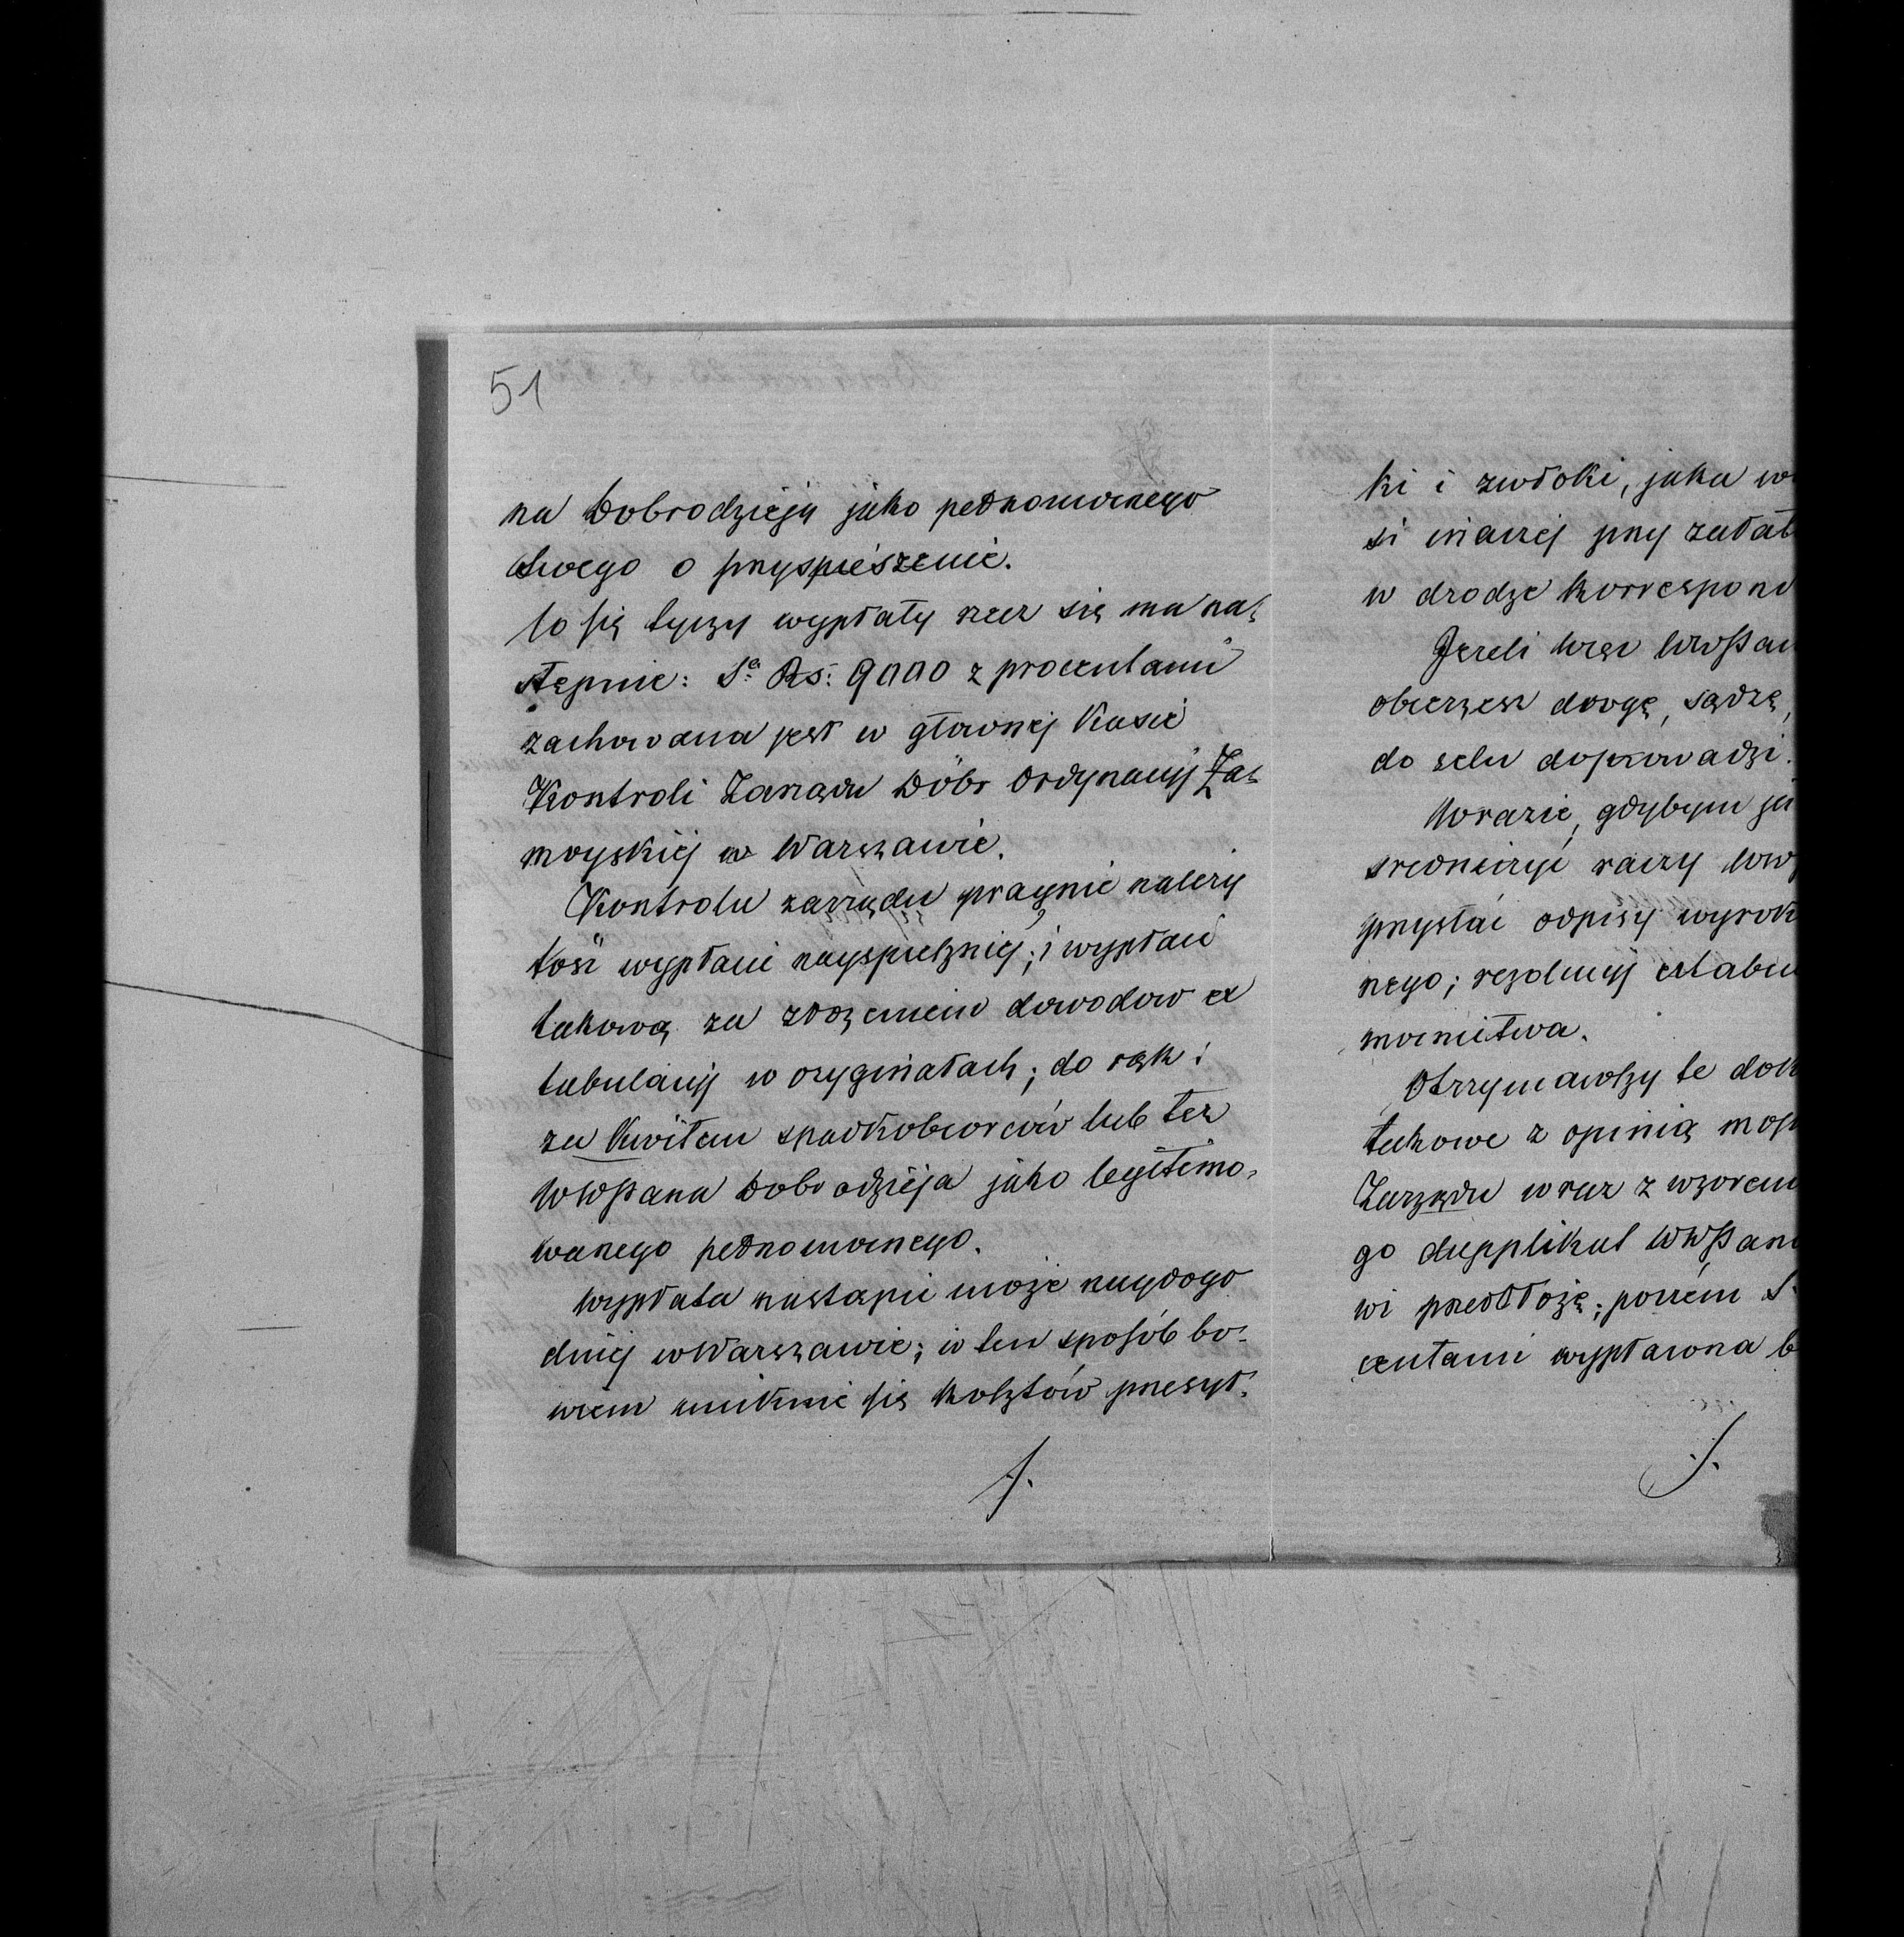 51
na Dobrodzieja jako pełnomocnego
swego o przyspieszenie.
Co się tyczy wypłaty rzecz się ma na-
stępnie: Sa Rs: 9000 z procentami
zachowana jest w głownej Kasie
Kontroli Zarządu Dóbr Ordynacij Za-
moyskiej w Warszawie.
Kontrola zarządu pragnie należy
tość wypłacić nayspieszniej; i wypłaci
takową za złożeniem dowodow ex
tabulacij w oryginałach; do rąk i
za Kwitem spadkobiorców lub też
WWPana Dobrodzieja jako legitimo-
wanego pełnomocnego.
Wypłata nastąpić może naydogo
dniej w Warszawie; w ten sposób bo-
wiem uniknie się kosztów przesył-
./.
ki i zwłoki, jaka w
si inaczej przy załat
w drodze korrespon
Jeżeli więc WWPan
obierzesz drogę, sądzę,
do celu doprowadzi.
W razie, gdybym ja
średniczyć raczy WW
przysłać odpisy wyrok
nego; rezolucij extabu
mocnictwa.
Otrzymawszy te dok
takowe z opinią mo
Zarządu wraz z wzorem
go dupplikat WWPan
wi przedłożę; poczém S
centami wypłacona b
./.